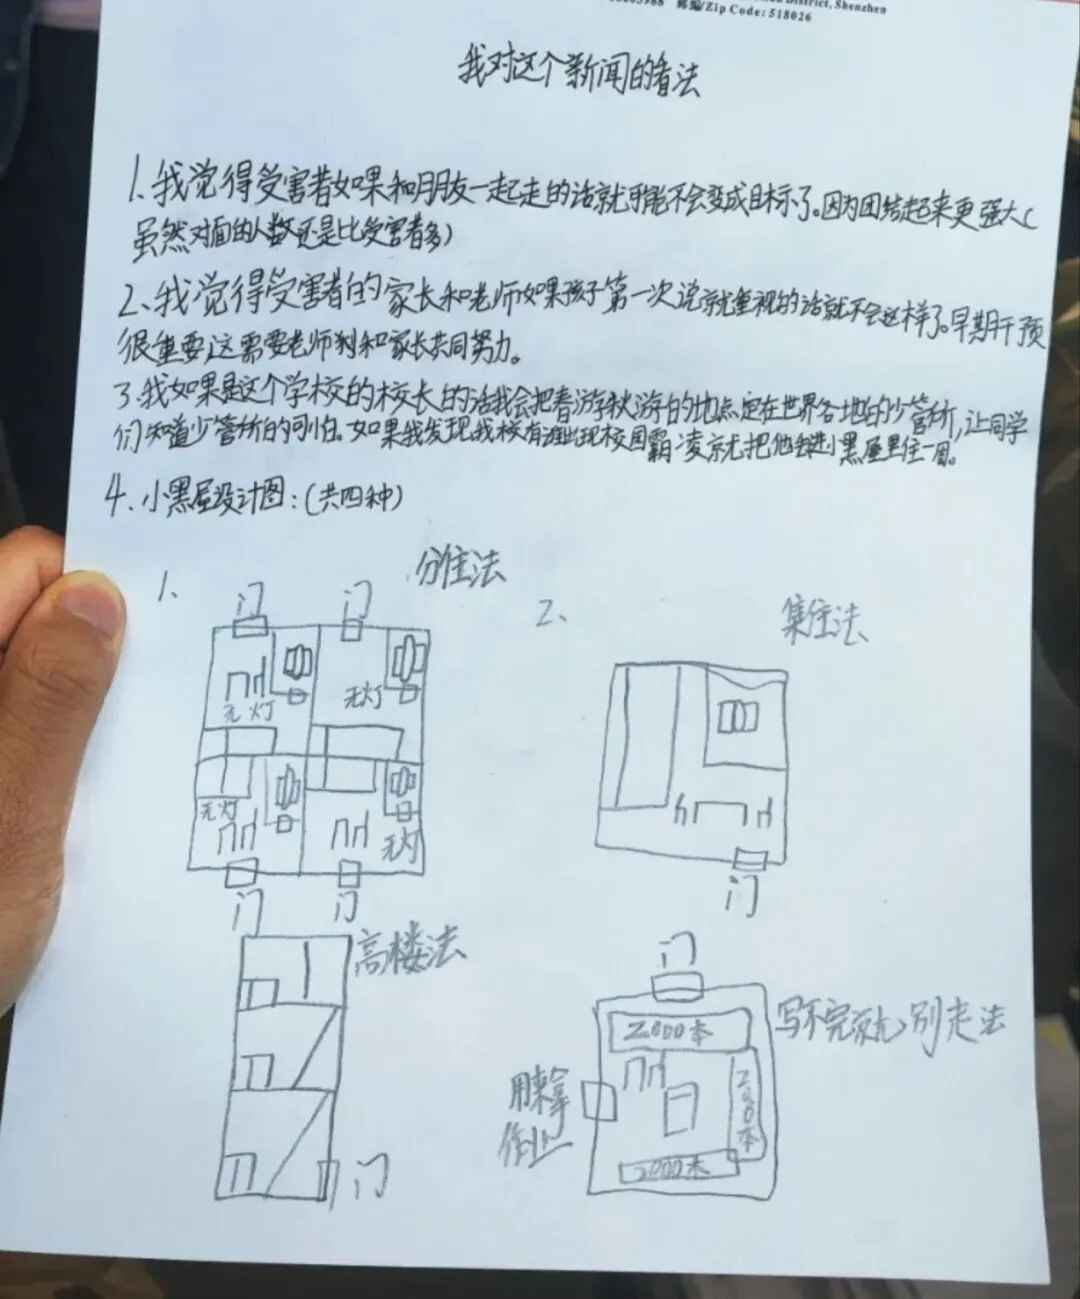 District, Shenzhen
邮编/Zip Code: 518026
我对这个新闻的看法
1.我觉得受害者如果和朋友一起走的话就可能不会变成目标了。因为团结起来更强大(
虽然对面的人数还是比受害者多)
2、我觉得受害者的家长和老师如果孩子第一次说就重视的话就不会这样了。早期干预
很重要这需要老师和家长共同努力。
3.我如果是这个学校的校长的话我会把春游秋游的地点定在世界各地的少管所,让同学
们知道少管所的可怕。如果我发现我校有出现校园霸凌就把他丢进小黑屋里住一周。
4.小黑屋设计图:(共四种)
1、
分住法
门 门
无灯 无灯
无灯 无灯
门 门
2、
集住法
门
高楼法
门
门
写不完就别走法
2000本
2000本
2000本
用来拿
作业